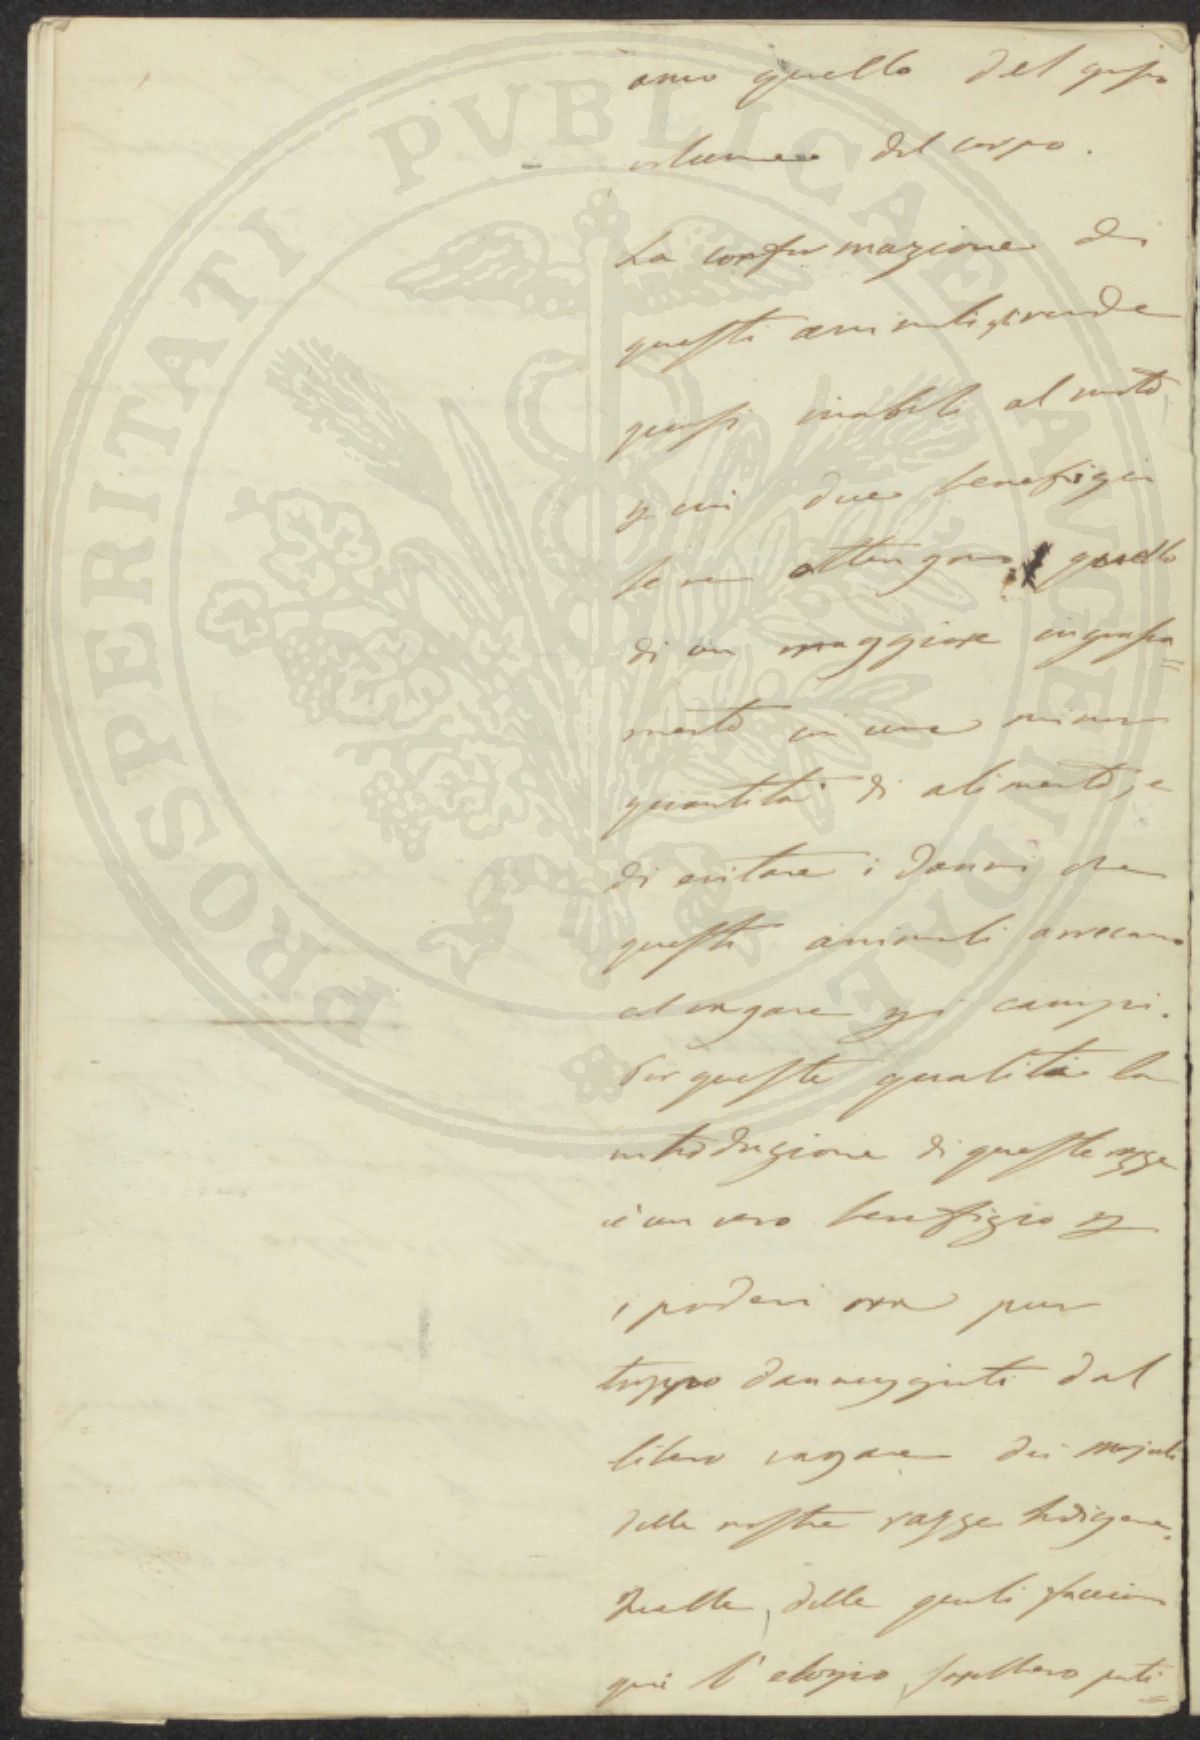 PROSPERITATI PVBLICAE AVGENDAE
anno quello del grosso
volume del corpo.
La conformazione di
questi animali gli rende
quasi inabili al moto,
p cui due benefizi
se ne ottengono, quello
di un maggiore ingrassa=
mento in una minor
quantità di alimento, e
di evitare i danni che
questi animali arrecano
al vagare pei campi.
Per queste qualità la
introduzione di queste razze
è un vero benefizio p
i poderi ora pur
troppo danneggiati dal
libero vagare dei majali
delle nostre razze indigene.
Quelle, delle quali facciam
qui l'elogio, sarebbero parti=